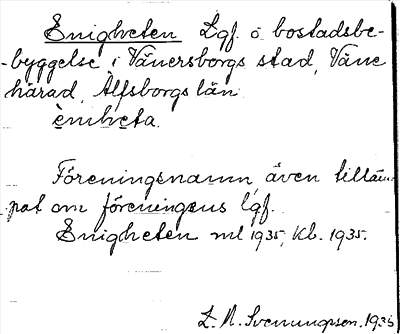 Enigheten Lgf. o. bostadsbe-
-byggelse i Vänersborgs stad, Väne
härad, Älfsborgs län.
èniheta.
Föreningsnamn, även tilläm-
-pat om föreningens lgf.
Enigheten ml 1935, Kb. 1935.
L. A. Svenungson. 1935